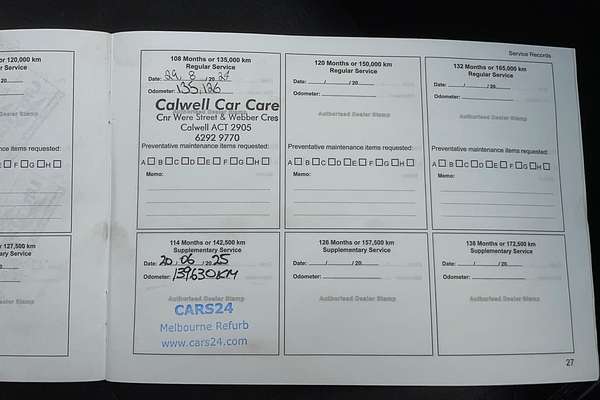 Service Records
or 120,000 km
r Service
20
items requested:
F G H
127,500 km
ry Service
20
Dealer Stamp
108 Months or 135,000 km
Regular Service
Date: 29 / 8 / 20 24
Odometer: 135,126
Calwell Car Care
Cnr Were Street & Webber Cres
Calwell ACT 2905
6292 9770
Preventative maintenance items requested:
A B C D E F G H
Memo:
120 Months or 150,000 km
Regular Service
Date: / / 20
Odometer:
Authorised Dealer Stamp
Preventative maintenance items requested:
A B C D E F G H
Memo:
132 Months or 165,000 km
Regular Service
Date: / / 20
Odometer:
Authorised Dealer Stamp
Preventative maintenance items requested:
A B C D E F G H
Memo:
114 Months or 142,500 km
Supplementary Service
Date: 20 / 06 / 20 25
Odometer: 139630KM
Authorised Dealer Stamp
CARS24
Melbourne Refurb
www.cars24.com
126 Months or 157,500 km
Supplementary Service
Date: / / 20
Odometer:
Authorised Dealer Stamp
138 Months or 172,500 km
Supplementary Service
Date: / / 20
Odometer:
Authorised Dealer Stamp
27